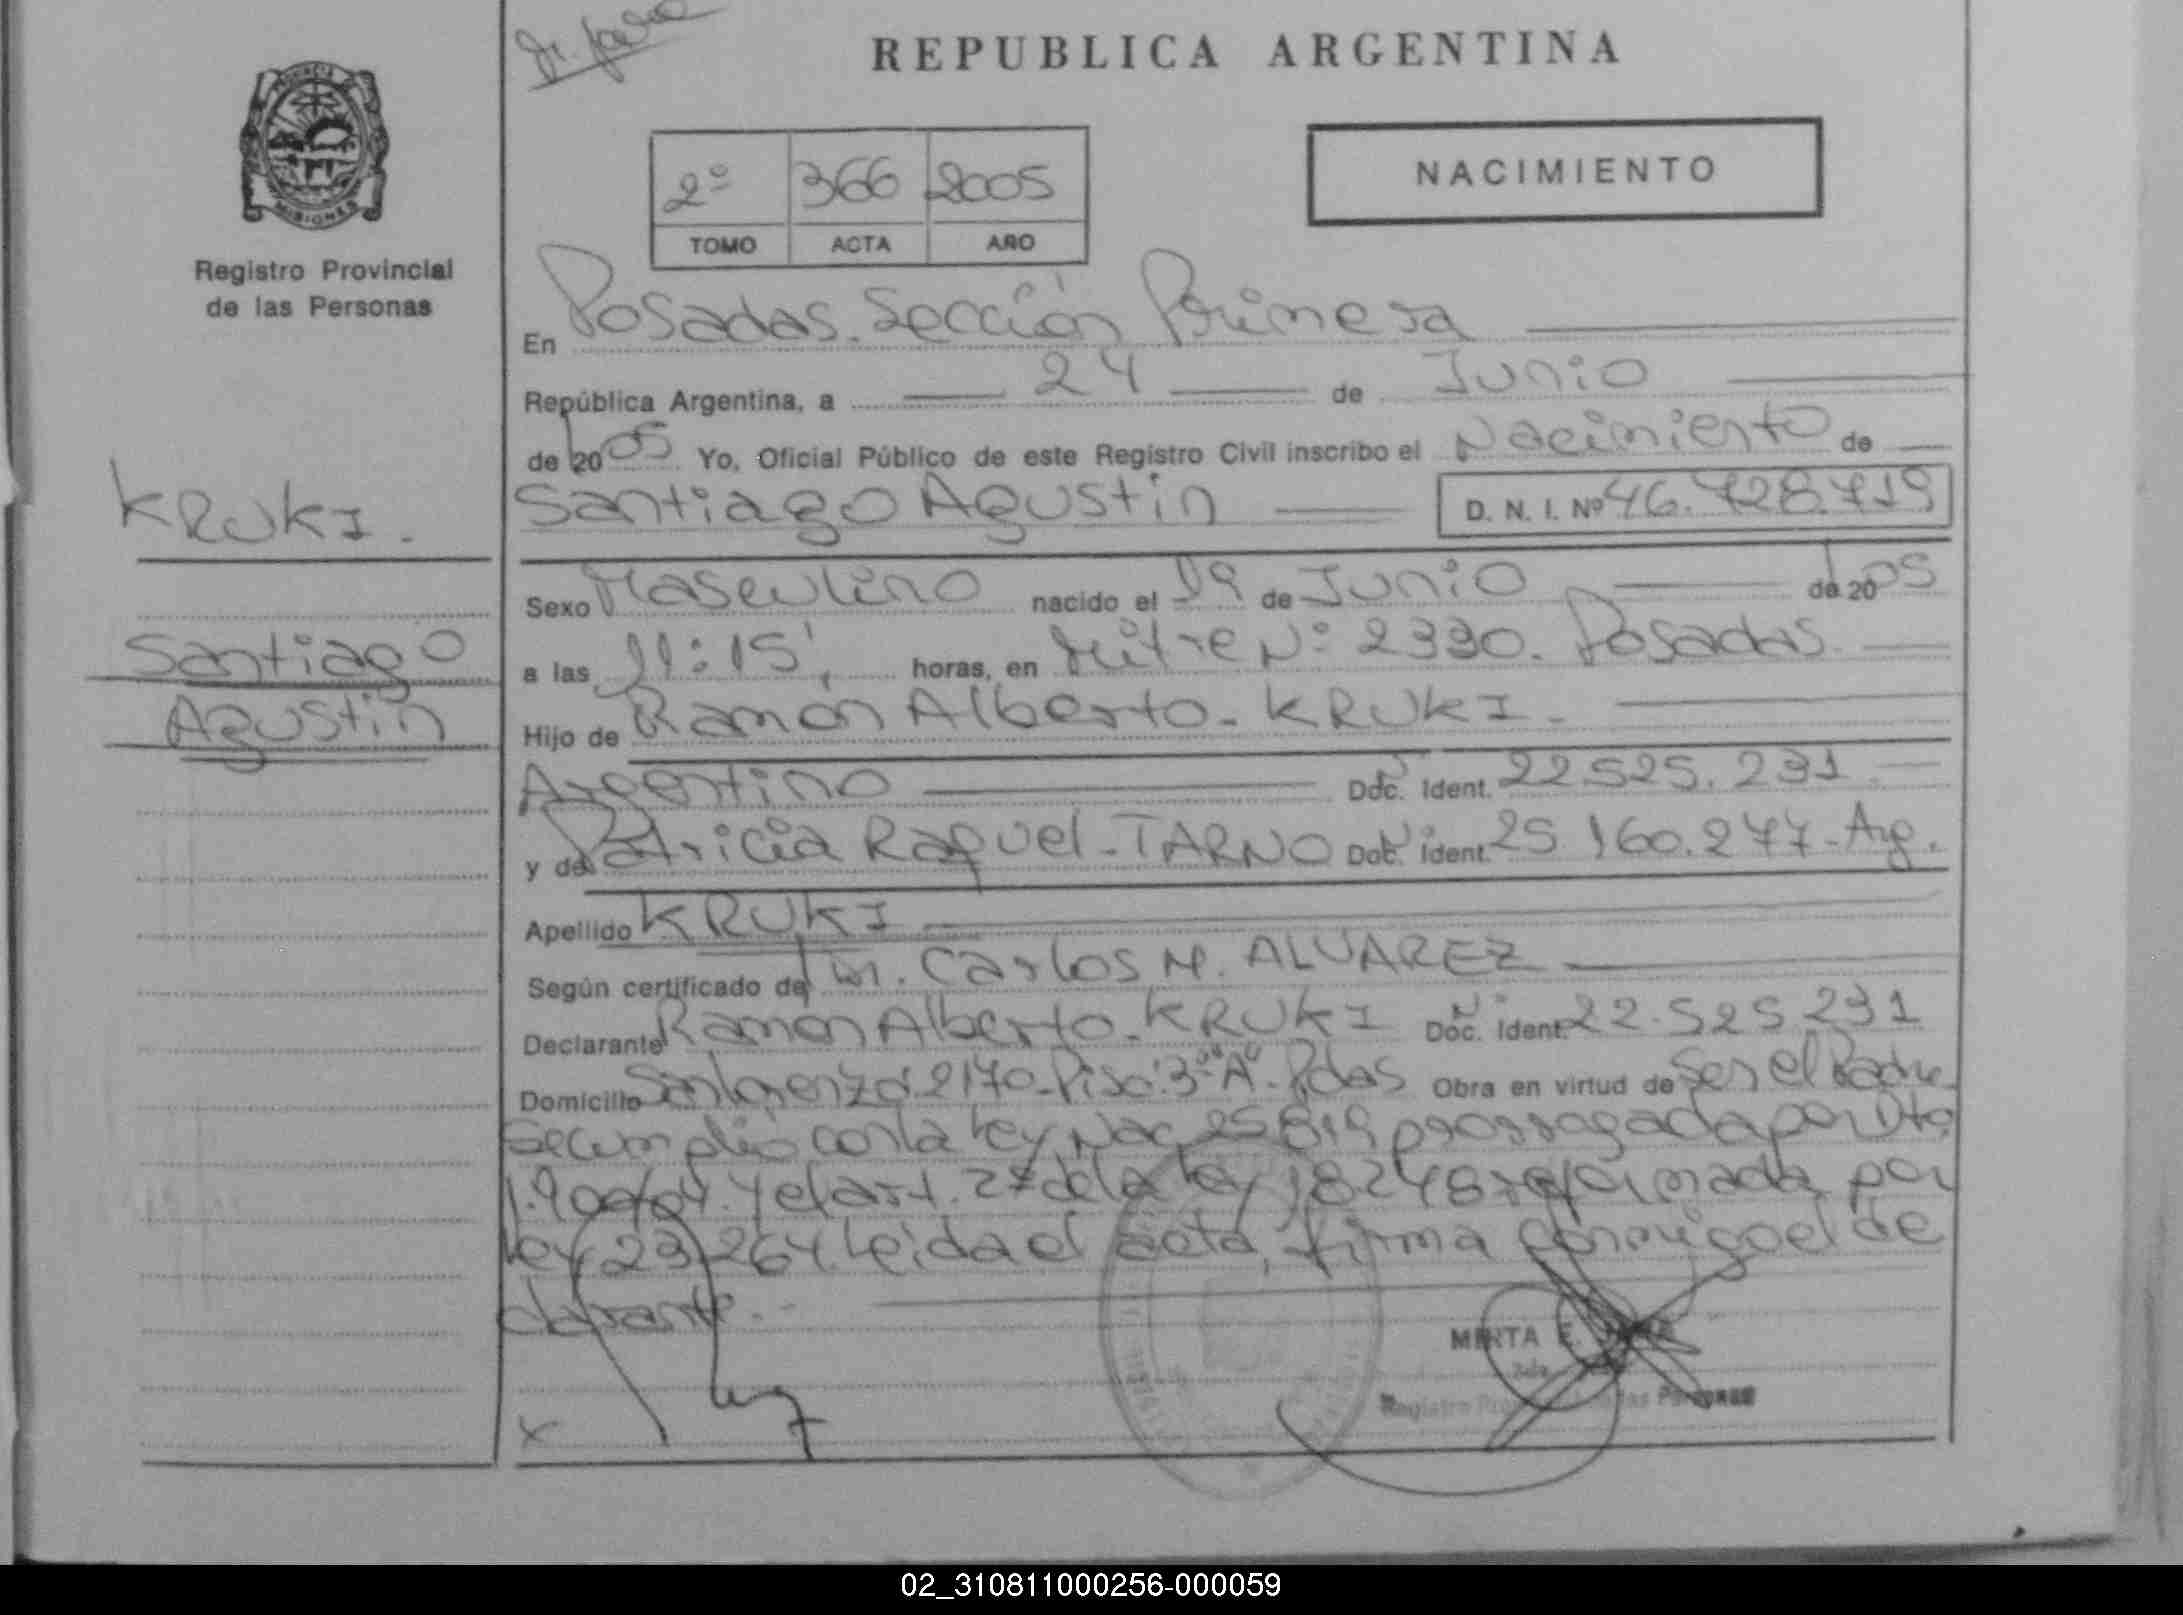 REPUBLICA ARGENTINA
PROVINCIA
MISIONES
Registro Provincial
de las Personas
2º 366 2005
TOMO ACTA AÑO
NACIMIENTO
En Posadas. Sección Primera
República Argentina, a 24 de Junio
de 2005 Yo, Oficial Público de este Registro Civil inscribo el Nacimiento de
KRUKI.
Santiago Agustin D. N. I. Nº 46.728.719
Sexo Masculino nacido el 19 de Junio de 2005
Santiago
a las 11:15', horas, en Mitre Nº 2330. Posadas.
Agustin
Hijo de Ramón Alberto - KRUKI.
Argentino Doc. Ident. 22.525.231
y de Patricia Raquel - TARNO Doc. Ident. 25.160.277 - Arg.
Apellido KRUKI
Según certificado de Carlos M. ALVAREZ
Declarante Ramón Alberto - KRUKI Doc. Ident. 22.525.231
Domicilio San Lorenzo 2170 - Piso: 3º "A" - Pdas Obra en virtud de Ser el Padre
Se cumplió con la Ley Nac. 25.819 prorrogada por Dto
y el art. 2º de la Ley 18248 reformada por
Ley 23.264. Leida el acta, firma conmigo el de
clarante.-
MIRTA E.
Registro de las Personas
02_310811000256-000059